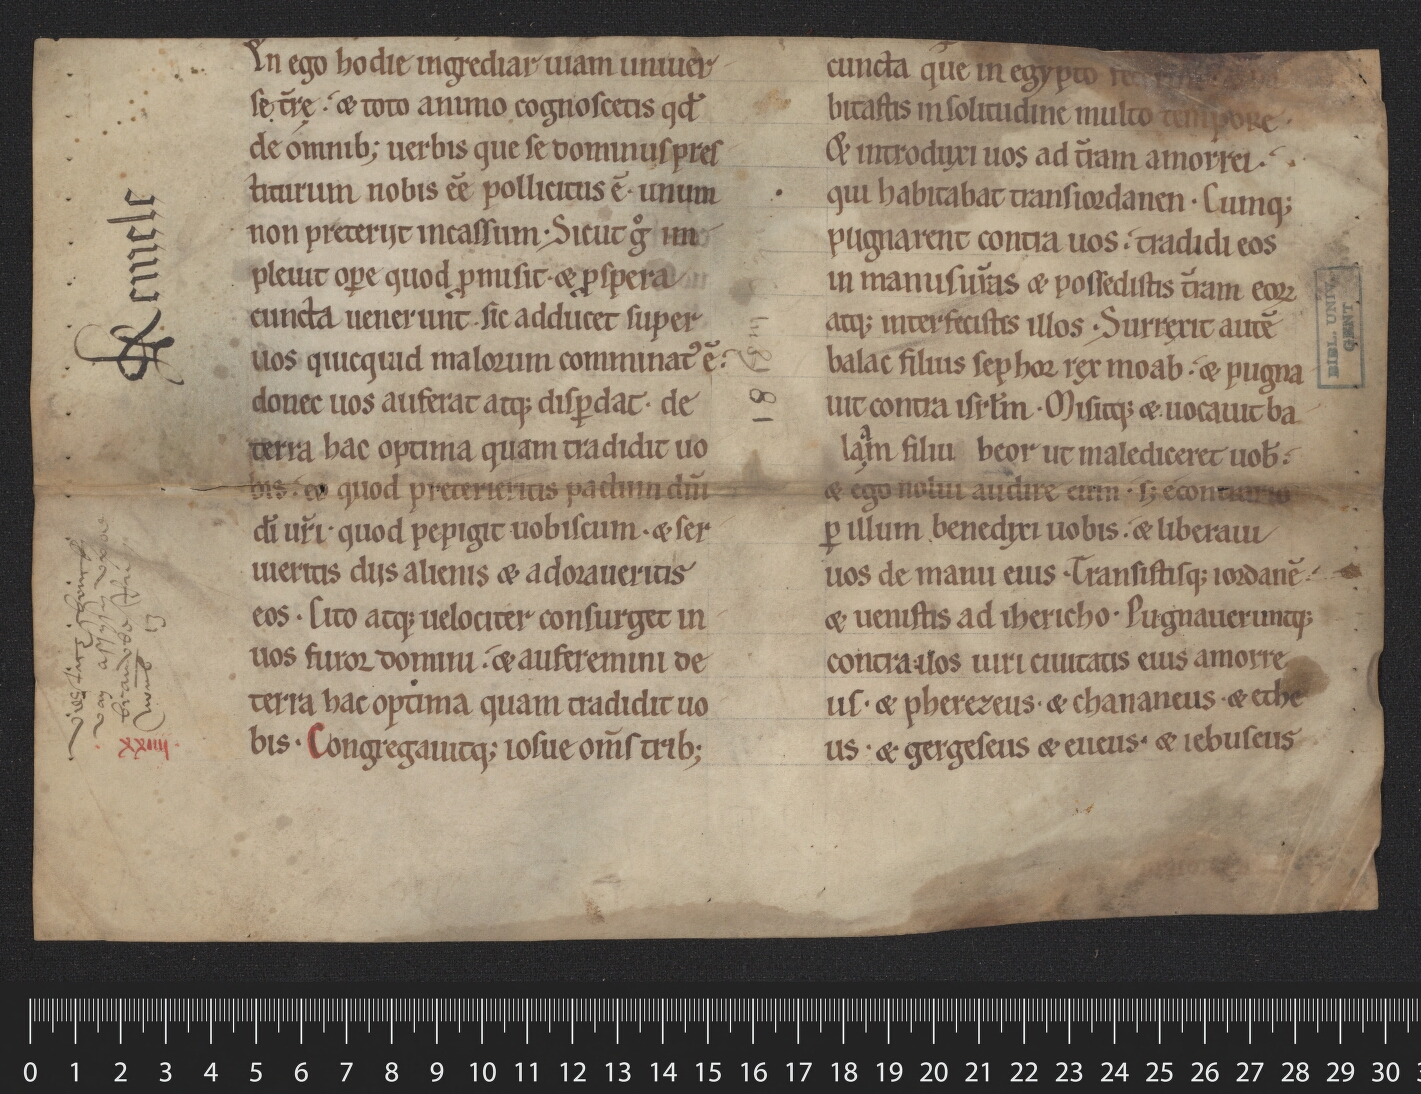 En ego hodie ingrediar uiam uniuer
sę tr̄ę. & toto animo cognoscetis qđ
de omnib; uerbis que se dominus pres
titurum nobis ēē pollicitus ē. unum
non preterijt incassum. Sicut g̊ im
pleuit oꝑe quod ꝓmisit. & ꝓspera
cuncta uenerunt. sic adducet super
uos quicquid malorum comminatꝰ ē.
donec uos auferat atq; disꝑdat. de
terra hac optima quam tradidit uo
bis. eo quod preterieritis pactum dn̄i
di ur̄i. quod pepigit uobiscum. & ser
uieritis diis alienis & adoraueritis
eos. Cito atq; uelociter consurget in
uos furor domini. & auferemini de
terra hac optima quam tradidit uo
bis. Congregauitq; iosue om̄s trib;
cuncta que in egypto
bitastis in solitudine multo tempore.
Et introduxi uos ad tr̄am amorrei.
qui habitabat transiordanen. Cumq;
pugnarent contra uos. tradidi eos
in manus ur̄as & possedistis tr̄am eoꝝ
atq; interfecistis illos. Surrexit autē
balac filius sephor rex moab. & pugna
uit contra isrl̄m. Misitq; & uocauit ba
laam filiu beor ut malediceret uob̄.
& ego nolui audire eum. s; econtrario
ꝑ illum benedixi uobis. & liberaui
uos de manu eius. Transistisq; iordanē.
& uenistis ad ihericho. Pugnaueruntq;
contra uos uiri ciuitatis eius amorre
us. & pherezeus. & chananeus. & ethe
us. & gergeseus & eueus. & iebuseus
81
BIBL. UNIV.
GENT
0 1 2 3 4 5 6 7 8 9 10 11 12 13 14 15 16 17 18 19 20 21 22 23 24 25 26 27 28 29 30